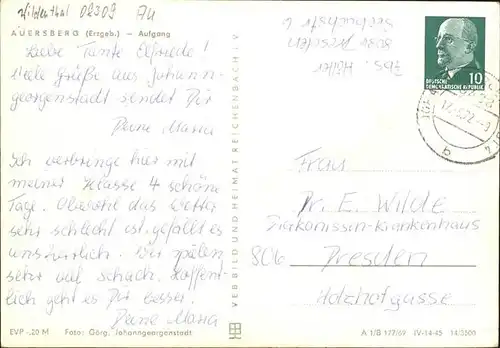 Wildenthal 02309 Au
AUERSBERG (Erzgeb.) – Aufgang
Liebe Tante Elfriede!
Viele Grüße aus Johann-
georgenstadt sendet Dir
Deine Maria
Ich verbringe hier mit
meiner Klasse 4 schöne
Tage. Obwohl das Wetter
sehr schlecht ist, gefällt es
uns. Wir spielen
sehr auf Schach. Hoffent-
lich geht es Dir besser.
Deine Maria
EVP -,20 M Foto: Görg, Johanngeorgenstadt
VEB BILD UND HEIMAT REICHENBACH I. V
Abs.
8036 Dresden
10
DEUTSCHE
DEMOKRATISCHE REPUBLIK
Frau
Dr. E. Wilde
Diakonissen-Krankenhaus
806 Dresden
Holzhofgasse
A 1/B 177/69 IV-14-45 14/3500